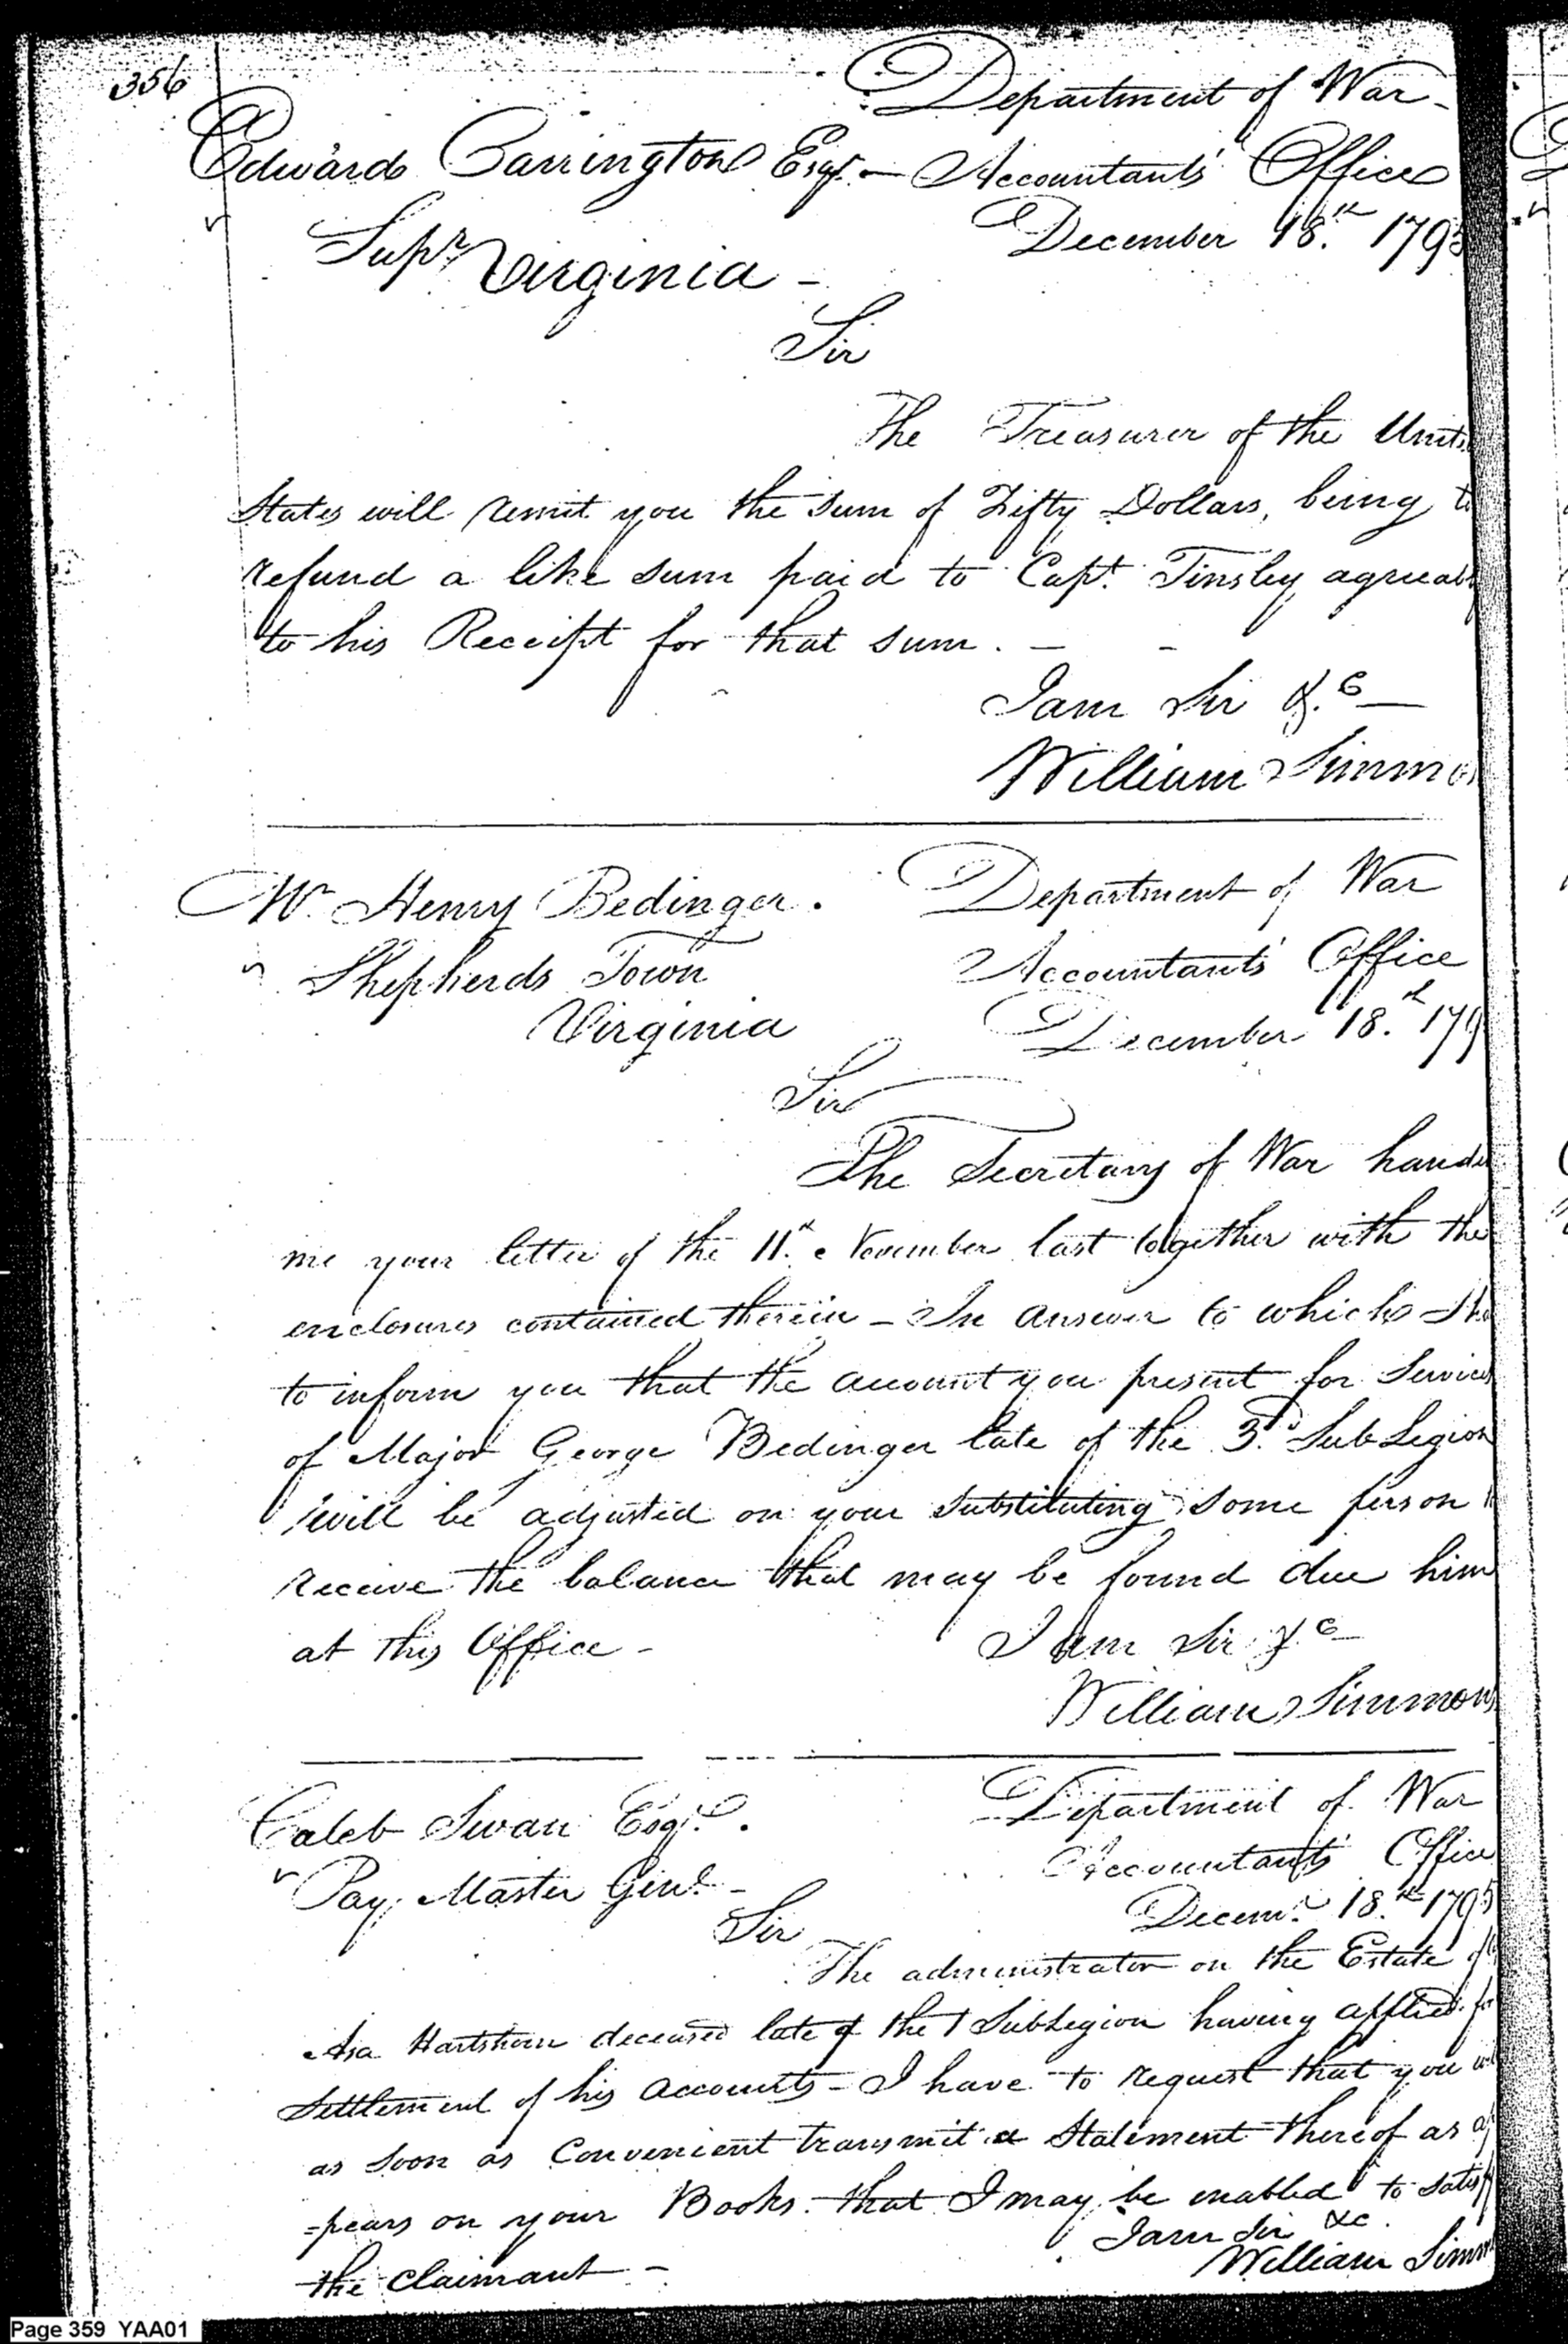 356
Department of War -
Edward Carrington Esqr. - Accountants Office
Supr. Virginia -
December 18.th 1795
Sir
The Treasurer of the Unite
States will remit you the sum of Fifty Dollars, being t
refund a like sum paid to Capt. Tinsley agreeabl
to his Receipt for that sum. - -
I am Sir &.c —
William Simmo
Mr. Henry Bedinger.
Shepherds Town
Virginia
Department of War
Accountants Office
December 18.th 179
Sir
The Secretary of War hande
me your letter of the 11.th November last together with the
enclosures contained therein - In answer to which I ha
to inform you that the account you present for Services
of Major George Bedinger late of the 3.d Sub Legion
will be adjusted on your substituting some person t
receive the balance that may be found due him
at this Office -
I am Sir &c —
William Simmons
Caleb Swan Esqr.
Pay Master Genl. -
Department of War
Accountants Office
Decemr. 18.th 1795
Sir
The administrator on the Estate of
Asa Hartshorn deceased late of the 1 Sub Legion having applied for
Settlement of his Accounts - I have to request that you wi
as soon as Convenient transmit a Statement thereof as ap
=pears on your Books. that I may be enabled to satisf
the Claimant -
I am Sir &c.
William Simm
Page 359 YAA01